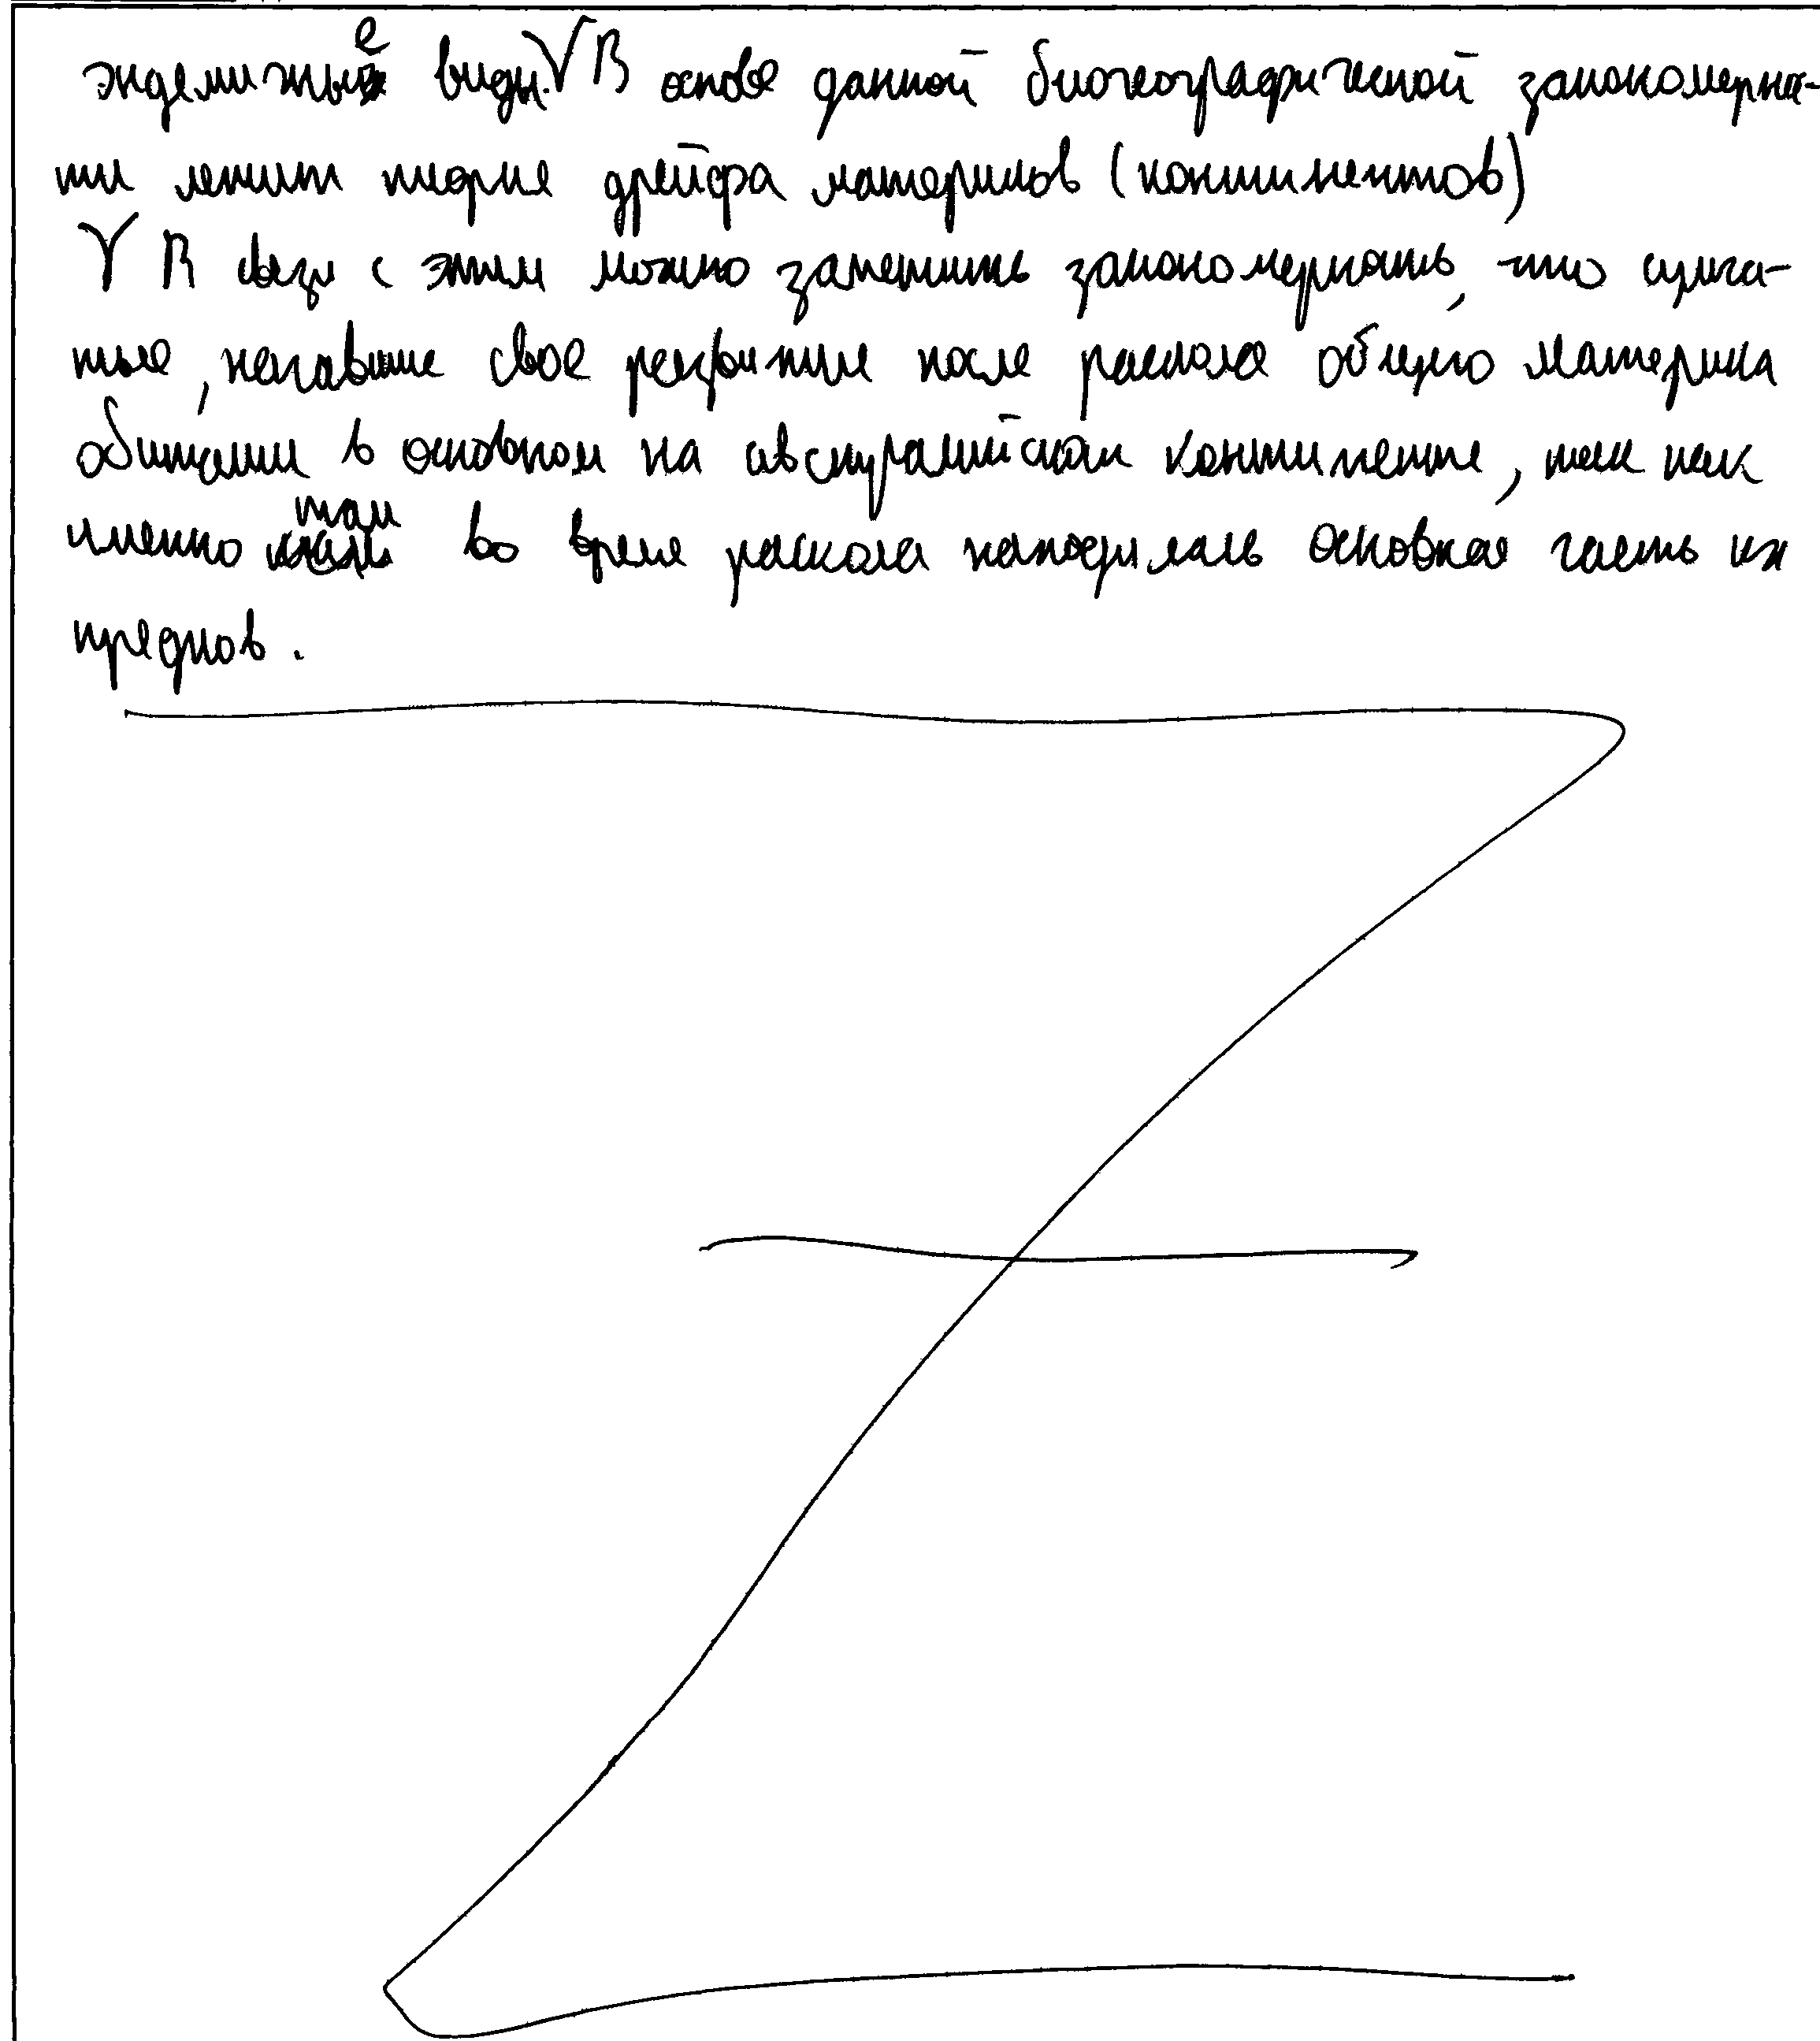 эндемичные виды. √ В основе данной биогеографической закономернос-
ти лежит теория дрейфа материков (континентов)
√ В связи с этим можно заметить закономерность, что сумча-
тые, начавшие свое развитие после раскола общего материка
обитали в основном на австралийском континенте, так как
именно там во время раскола находилась основная часть их
предков.